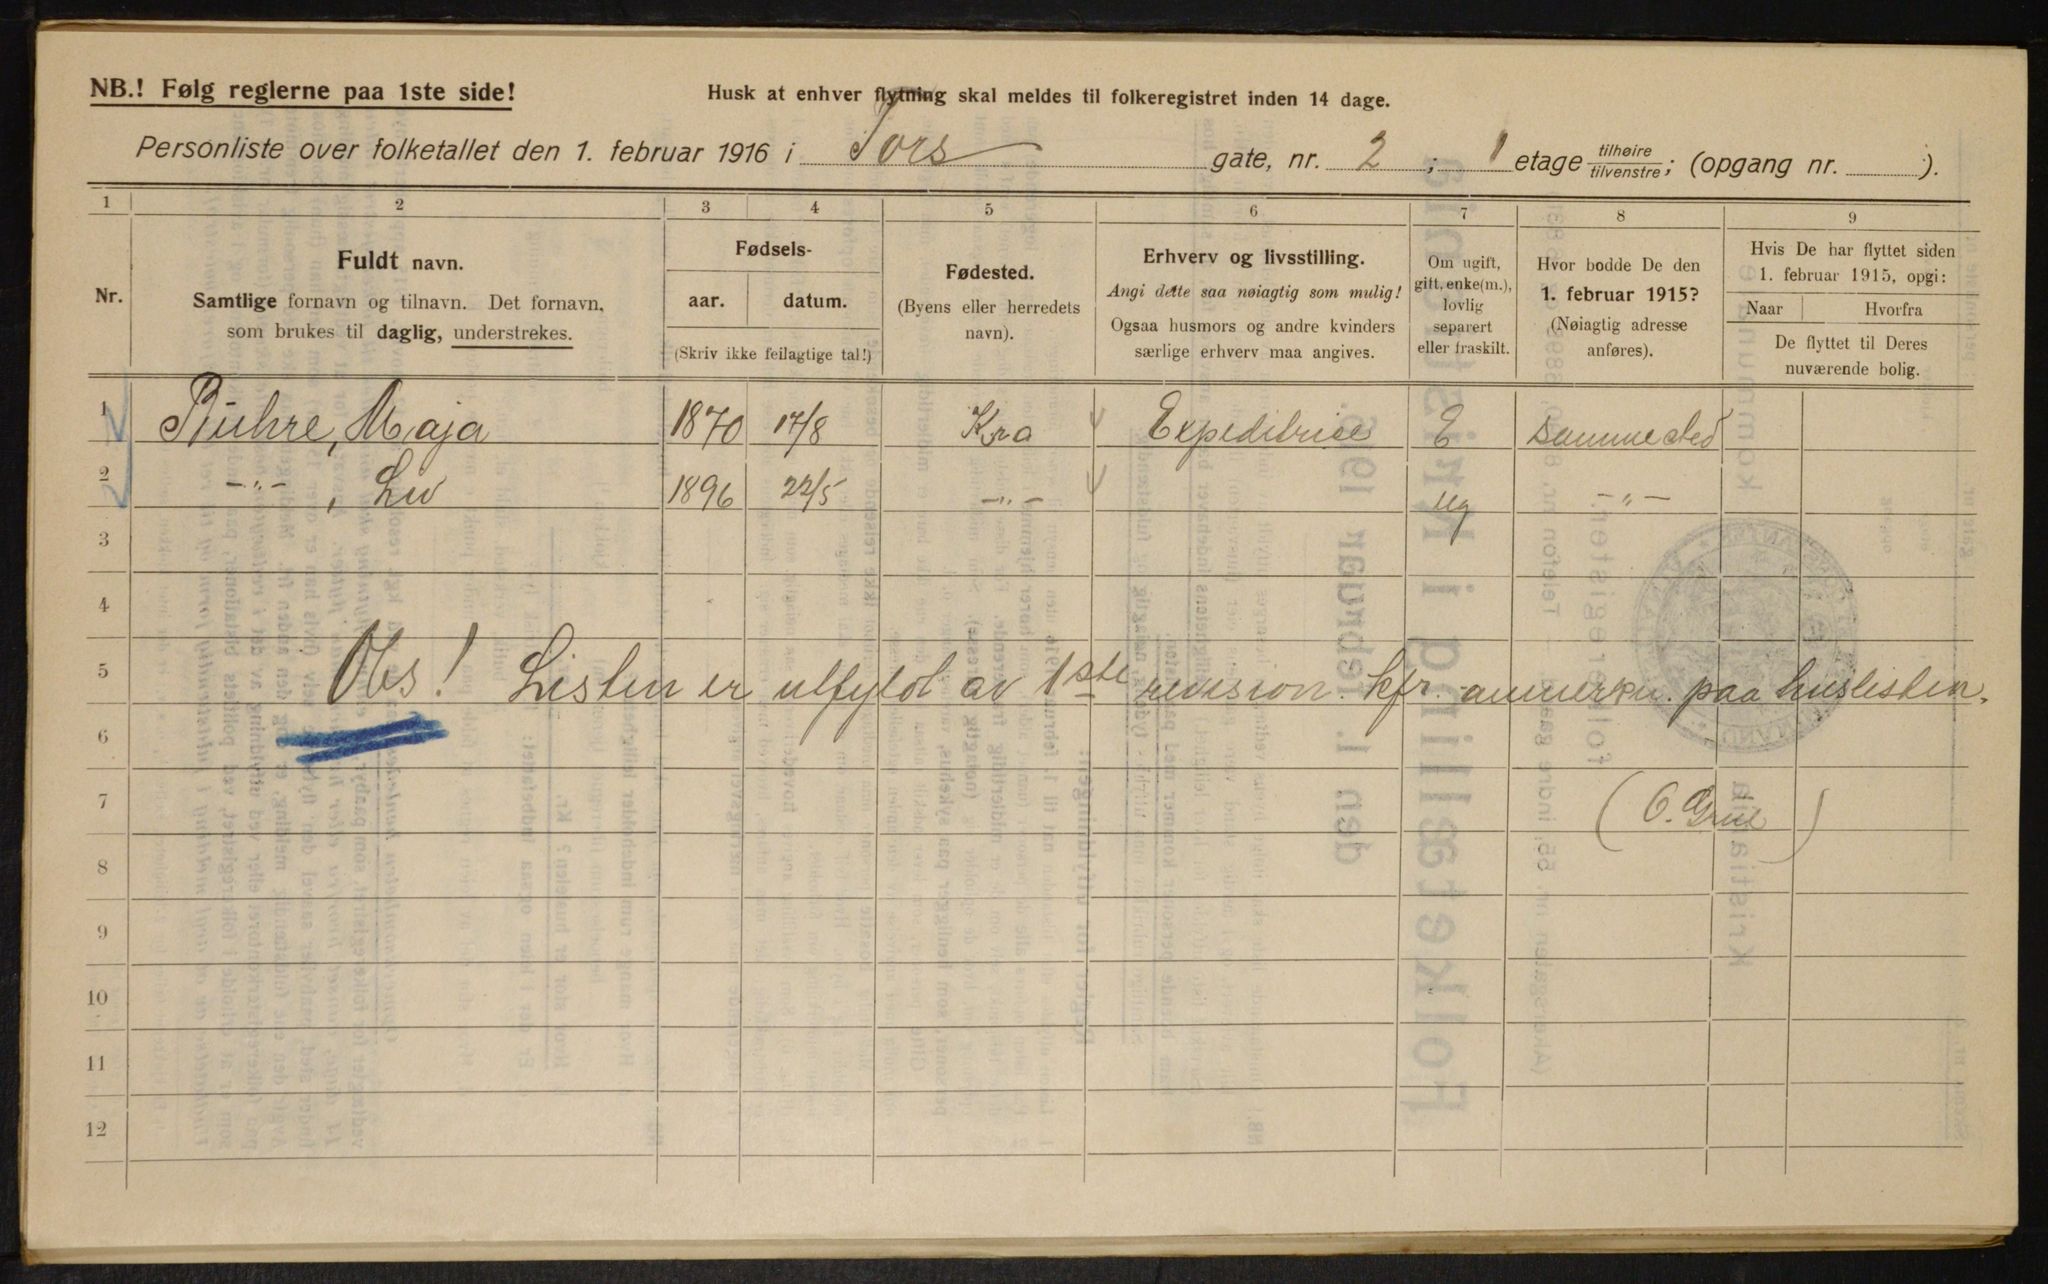 NB.! Følg reglerne paa 1ste side!
Husk at enhver flytning skal meldes til folkeregistret inden 14 dage.
Personliste over folketallet den 1. februar 1916 i Tors gate, nr. 2 ; 1 etage tilhøire/tilvenstre; (opgang nr. ).
1 2 3 4 5 6 7 8 9
Nr.
Fuldt navn.
Samtlige fornavn og tilnavn. Det fornavn,
som brukes til daglig, understrekes.
Fødsels-
aar. datum.
(Skriv ikke feilagtige tal!)
Fødested.
(Byens eller herredets
navn).
Erhverv og livsstilling.
Angi dette saa nøiagtig som mulig!
Ogsaa husmors og andre kvinders
særlige erhverv maa angives.
Om ugift,
gift, enke(m.),
lovlig
separert
eller fraskilt.
Hvor bodde De den
1. februar 1915?
(Nøiagtig adresse
anføres).
Hvis De har flyttet siden
1. februar 1915, opgi:
Naar Hvorfra
De flyttet til Deres
nuværende bolig.
1 Maja 1870 17/8 Kra Expeditrise E sammested
2 —"— , 1896 22/5 —"— ug —"—
3
4
5 Obs! Listen er utfyldt av 1ste revision. kfr. anmerkn. paa huslisten.
6
7 (O. )
8
9
10
11
12